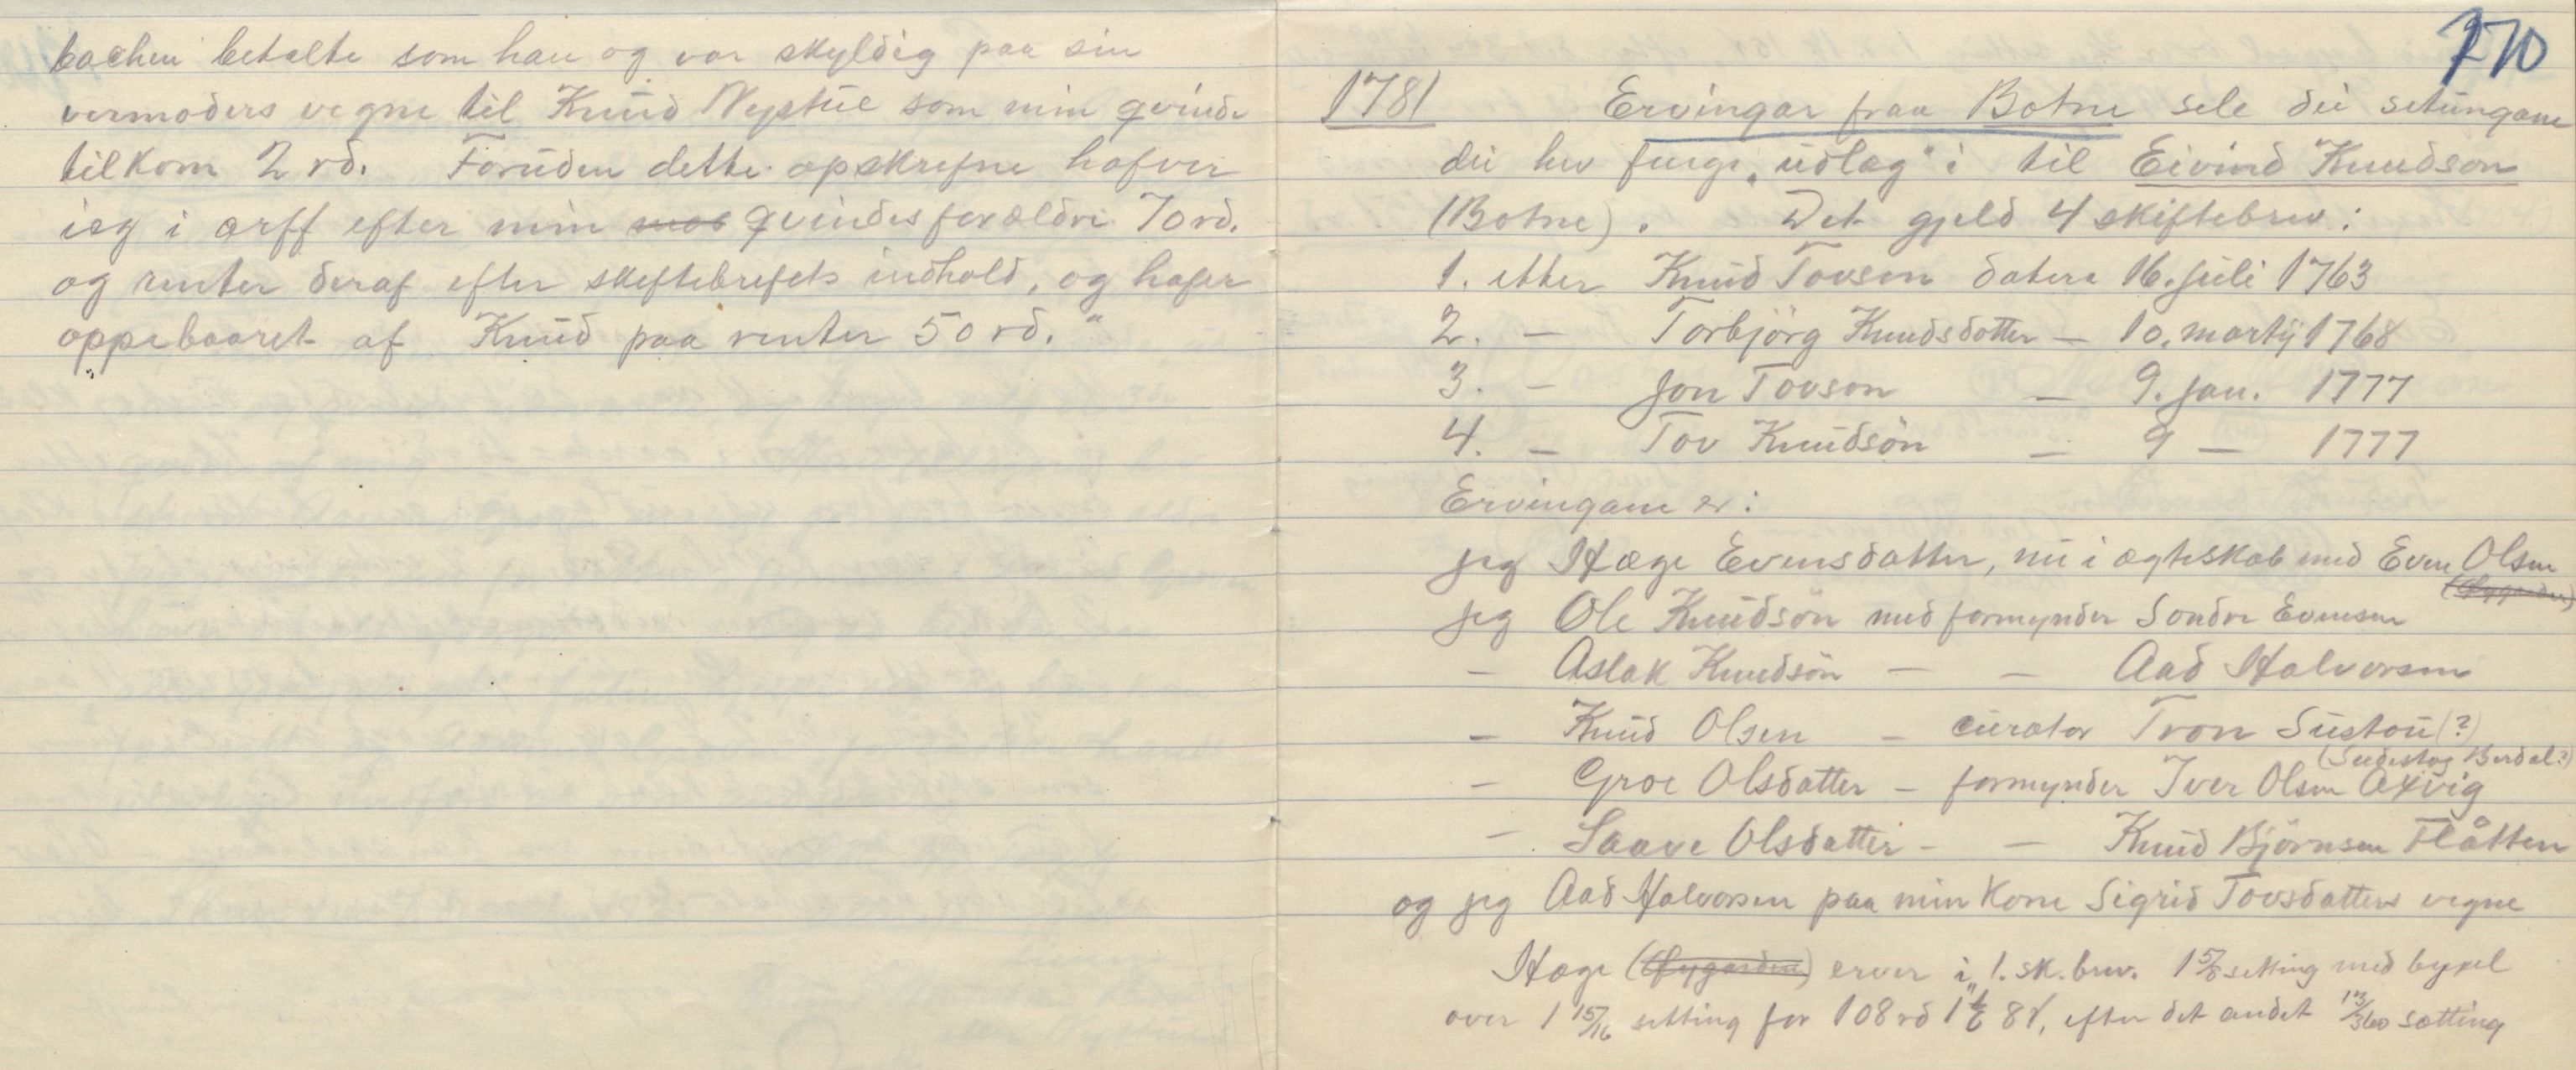 bachen betalte som han og var skyldig paa sin
vermoders vegne til Knud Nystul som min qvinde
tilkom 2 rd. Foruden dette opskrefne hafver
ieg i arff efter min qvindes forældre 70 rd.
og renter deraf efter skeftebrefets indhold, og hafer
oppebaaret af Knud paa renter 50 rd."
270
1781 Ervingar fraa Botne sele dei setungane
dei hev fenge "udlæg" i til Eivind Knudson
(Botne). Det gjeld 4 skiftebrev:
1. etter Knud Tovsen datera 16. juli 1763
2. – Torbjörg Knudsdotter – 10. martij 1768
3. – Jon Tovson – 9. jan. 1777
4. – Tov Knudsön – 9 – 1777
Ervingane er:
jeg Hæge Evensdatter, nu i ægteskab med Even Olsen
jeg Ole Knudsön med formynder Sondre Evensen
– Aslak Knudsön – – Aad Halvorsen
– Knud Olsen – curator Tron Sustou (?)
(Sudistog Berdal?)
– Groe Olsdatter – formynder Iver Olsen Axvig
– Saave Olsdatter – – Knud Björnsen Flåtten
og jeg Aad Halvorsen paa min kone Sigrid Tovsdatters vegne
Hæge (Nygarden) erver i "1. sk. brev. 1 5/8 setting med bygsel
over 1 15/16 setting for 108 rd 1 ₰ 8 s, efter det andet 13/360 sætting